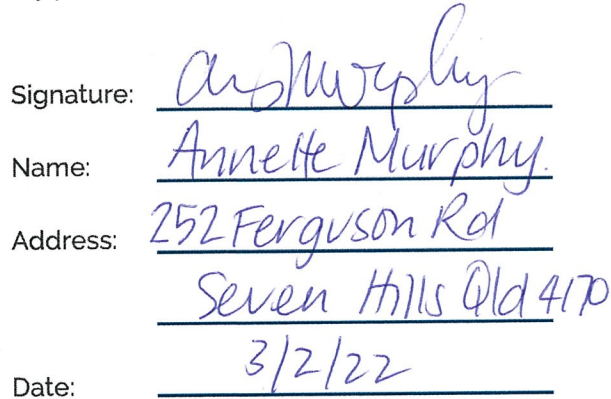 Signature: AnnMurphy
Name: Annette Murphy.
Address: 252 Ferguson Rd
Seven Hills Qld 4170
Date: 3/2/22